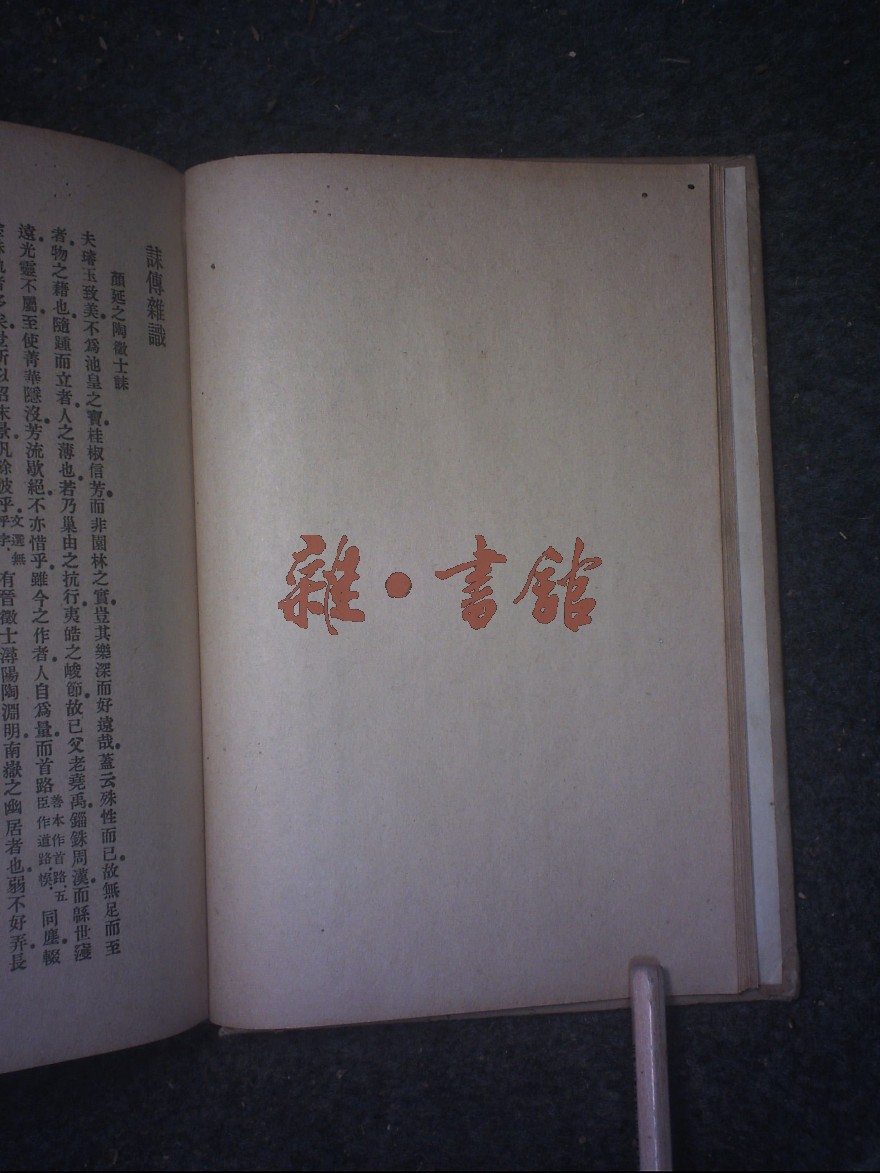 誄傳雜識
顏延之陶徵士誄
夫璿玉致美不爲池皇之寶桂椒信芳而非園林之實豈其樂深而好遠哉蓋云殊性而已故無足而至
者物之藉也隨踵而立者人之薄也若乃巢由之抗行夷皓之峻節故已父老堯禹錙銖周漢而緜世寖
遠光靈不屬至使菁華隱沒芳流歇絕不亦惜乎雖今之作者人自爲量而首路善本作首路五臣作道路誤同塵輟
乎文選無乎字有晉徵士潯陽陶淵明南嶽之幽居者也弱不好弄長
雜·書館